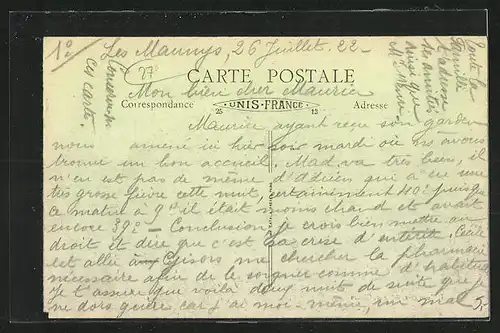 1°
Les Maunys, 26 Juillet. 22 -
Conserver
ces cartes.
27
CARTE POSTALE
Mon bien cher Maurice
Correspondance
UNIS-FRANCE
25 13
Adresse
Toute la
famille
t'adresse
ses amitiés
ainsi que
Maurice ayant reçu son
nous amené ici hier soir mardi où ns avons
trouvé un bon accueil. Mad. va très bien, il
n'en est pas de même d' qui a eu une
très grosse fièvre cette nuit, certainement 40° puisque
ce matin à 9h il était moins chaud et avait
encore 39° - Conclusion, je crois bien mettre au
droit et dire que c'est la crise d'entérite, Cécile
est allée à Gisors me chercher la pharmacie
nécessaire afin de le soigner comme d'habitude
Je t'assure que voilà deux nuits de suite que je
ne dors guère car j'ai moi-même, mal